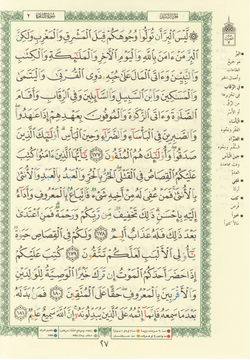 لَيْسَ ٱلْبِرَّ أَن تُوَلُّوا۟ وُجُوهَكُمْ قِبَلَ ٱلْمَشْرِقِ وَٱلْمَغْرِبِ وَلَٰكِنَّ
ٱلْبِرَّ مَنْ ءَامَنَ بِٱللَّهِ وَٱلْيَوْمِ ٱلْءَاخِرِ وَٱلْمَلَٰٓئِكَةِ وَٱلْكِتَٰبِ
وَٱلنَّبِيِّۦنَ وَءَاتَى ٱلْمَالَ عَلَىٰ حُبِّهِۦ ذَوِى ٱلْقُرْبَىٰ وَٱلْيَتَٰمَىٰ
وَٱلْمَسَٰكِينَ وَٱبْنَ ٱلسَّبِيلِ وَٱلسَّآئِلِينَ وَفِى ٱلرِّقَابِ وَأَقَامَ
ٱلصَّلَوٰةَ وَءَاتَى ٱلزَّكَوٰةَ وَٱلْمُوفُونَ بِعَهْدِهِمْ إِذَا عَٰهَدُوا۟
وَٱلصَّٰبِرِينَ فِى ٱلْبَأْسَآءِ وَٱلضَّرَّآءِ وَحِينَ ٱلْبَأْسِ أُو۟لَٰٓئِكَ ٱلَّذِينَ
صَدَقُوا۟ وَأُو۟لَٰٓئِكَ هُمُ ٱلْمُتَّقُونَ ١٧٧ يَٰٓأَيُّهَا ٱلَّذِينَ ءَامَنُوا۟ كُتِبَ
عَلَيْكُمُ ٱلْقِصَاصُ فِى ٱلْقَتْلَى ٱلْحُرُّ بِٱلْحُرِّ وَٱلْعَبْدُ بِٱلْعَبْدِ وَٱلْأُنثَىٰ
بِٱلْأُنثَىٰ فَمَنْ عُفِىَ لَهُۥ مِنْ أَخِيهِ شَىْءٌ فَٱتِّبَاعٌۢ بِٱلْمَعْرُوفِ وَأَدَآءٌ
إِلَيْهِ بِإِحْسَٰنٍ ذَٰلِكَ تَخْفِيفٌ مِّن رَّبِّكُمْ وَرَحْمَةٌ فَمَنِ ٱعْتَدَىٰ
بَعْدَ ذَٰلِكَ فَلَهُۥ عَذَابٌ أَلِيمٌ ١٧٨ وَلَكُمْ فِى ٱلْقِصَاصِ حَيَوٰةٌ
يَٰٓأُو۟لِى ٱلْأَلْبَٰبِ لَعَلَّكُمْ تَتَّقُونَ ١٧٩ كُتِبَ عَلَيْكُمْ
إِذَا حَضَرَ أَحَدَكُمُ ٱلْمَوْتُ إِن تَرَكَ خَيْرًا ٱلْوَصِيَّةُ لِلْوَٰلِدَيْنِ
وَٱلْأَقْرَبِينَ بِٱلْمَعْرُوفِ حَقًّا عَلَى ٱلْمُتَّقِينَ ١٨٠ فَمَنۢ بَدَّلَهُۥ
بَعْدَ مَا سَمِعَهُۥ فَإِنَّمَآ إِثْمُهُۥ عَلَى ٱلَّذِينَ يُبَدِّلُونَهُۥٓ إِنَّ ٱللَّهَ سَمِيعٌ عَلِيمٌ ١٨١
٢٧